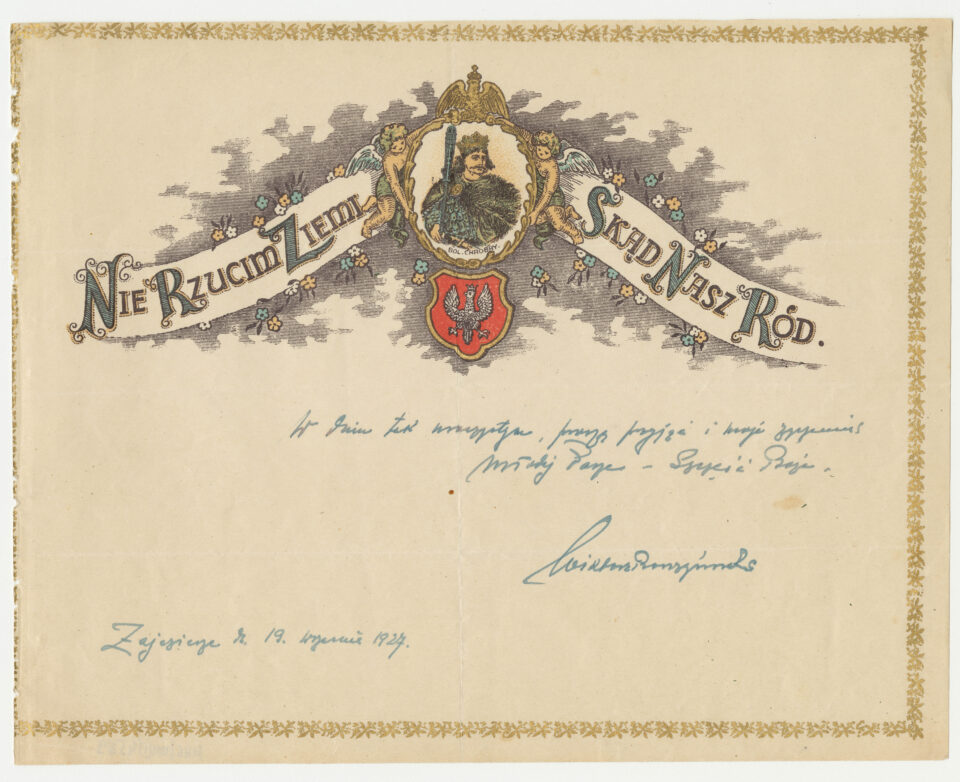 NIE RZUCIM ZIEMI SKĄD NASZ RÓD.
BOL. CHROBRY.
W dniu tak uroczystym, proszę przyjąć i moje życzenia
Młodej Parze – Szczęść Boże.
Wiktor
19. września 1927.